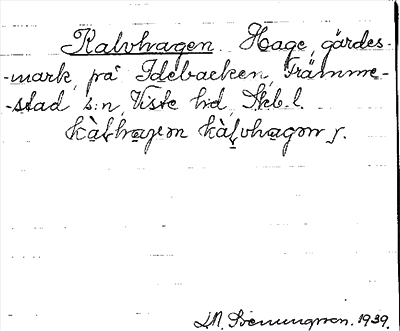 Kalvhagen. Hage, gärdes-
-mark, på Idebacken, Främme-
-stad s:n, Viste hd, Skb.l.
kàlvhagen kàlvhagen f.
L.M. Svenungsson. 1939.